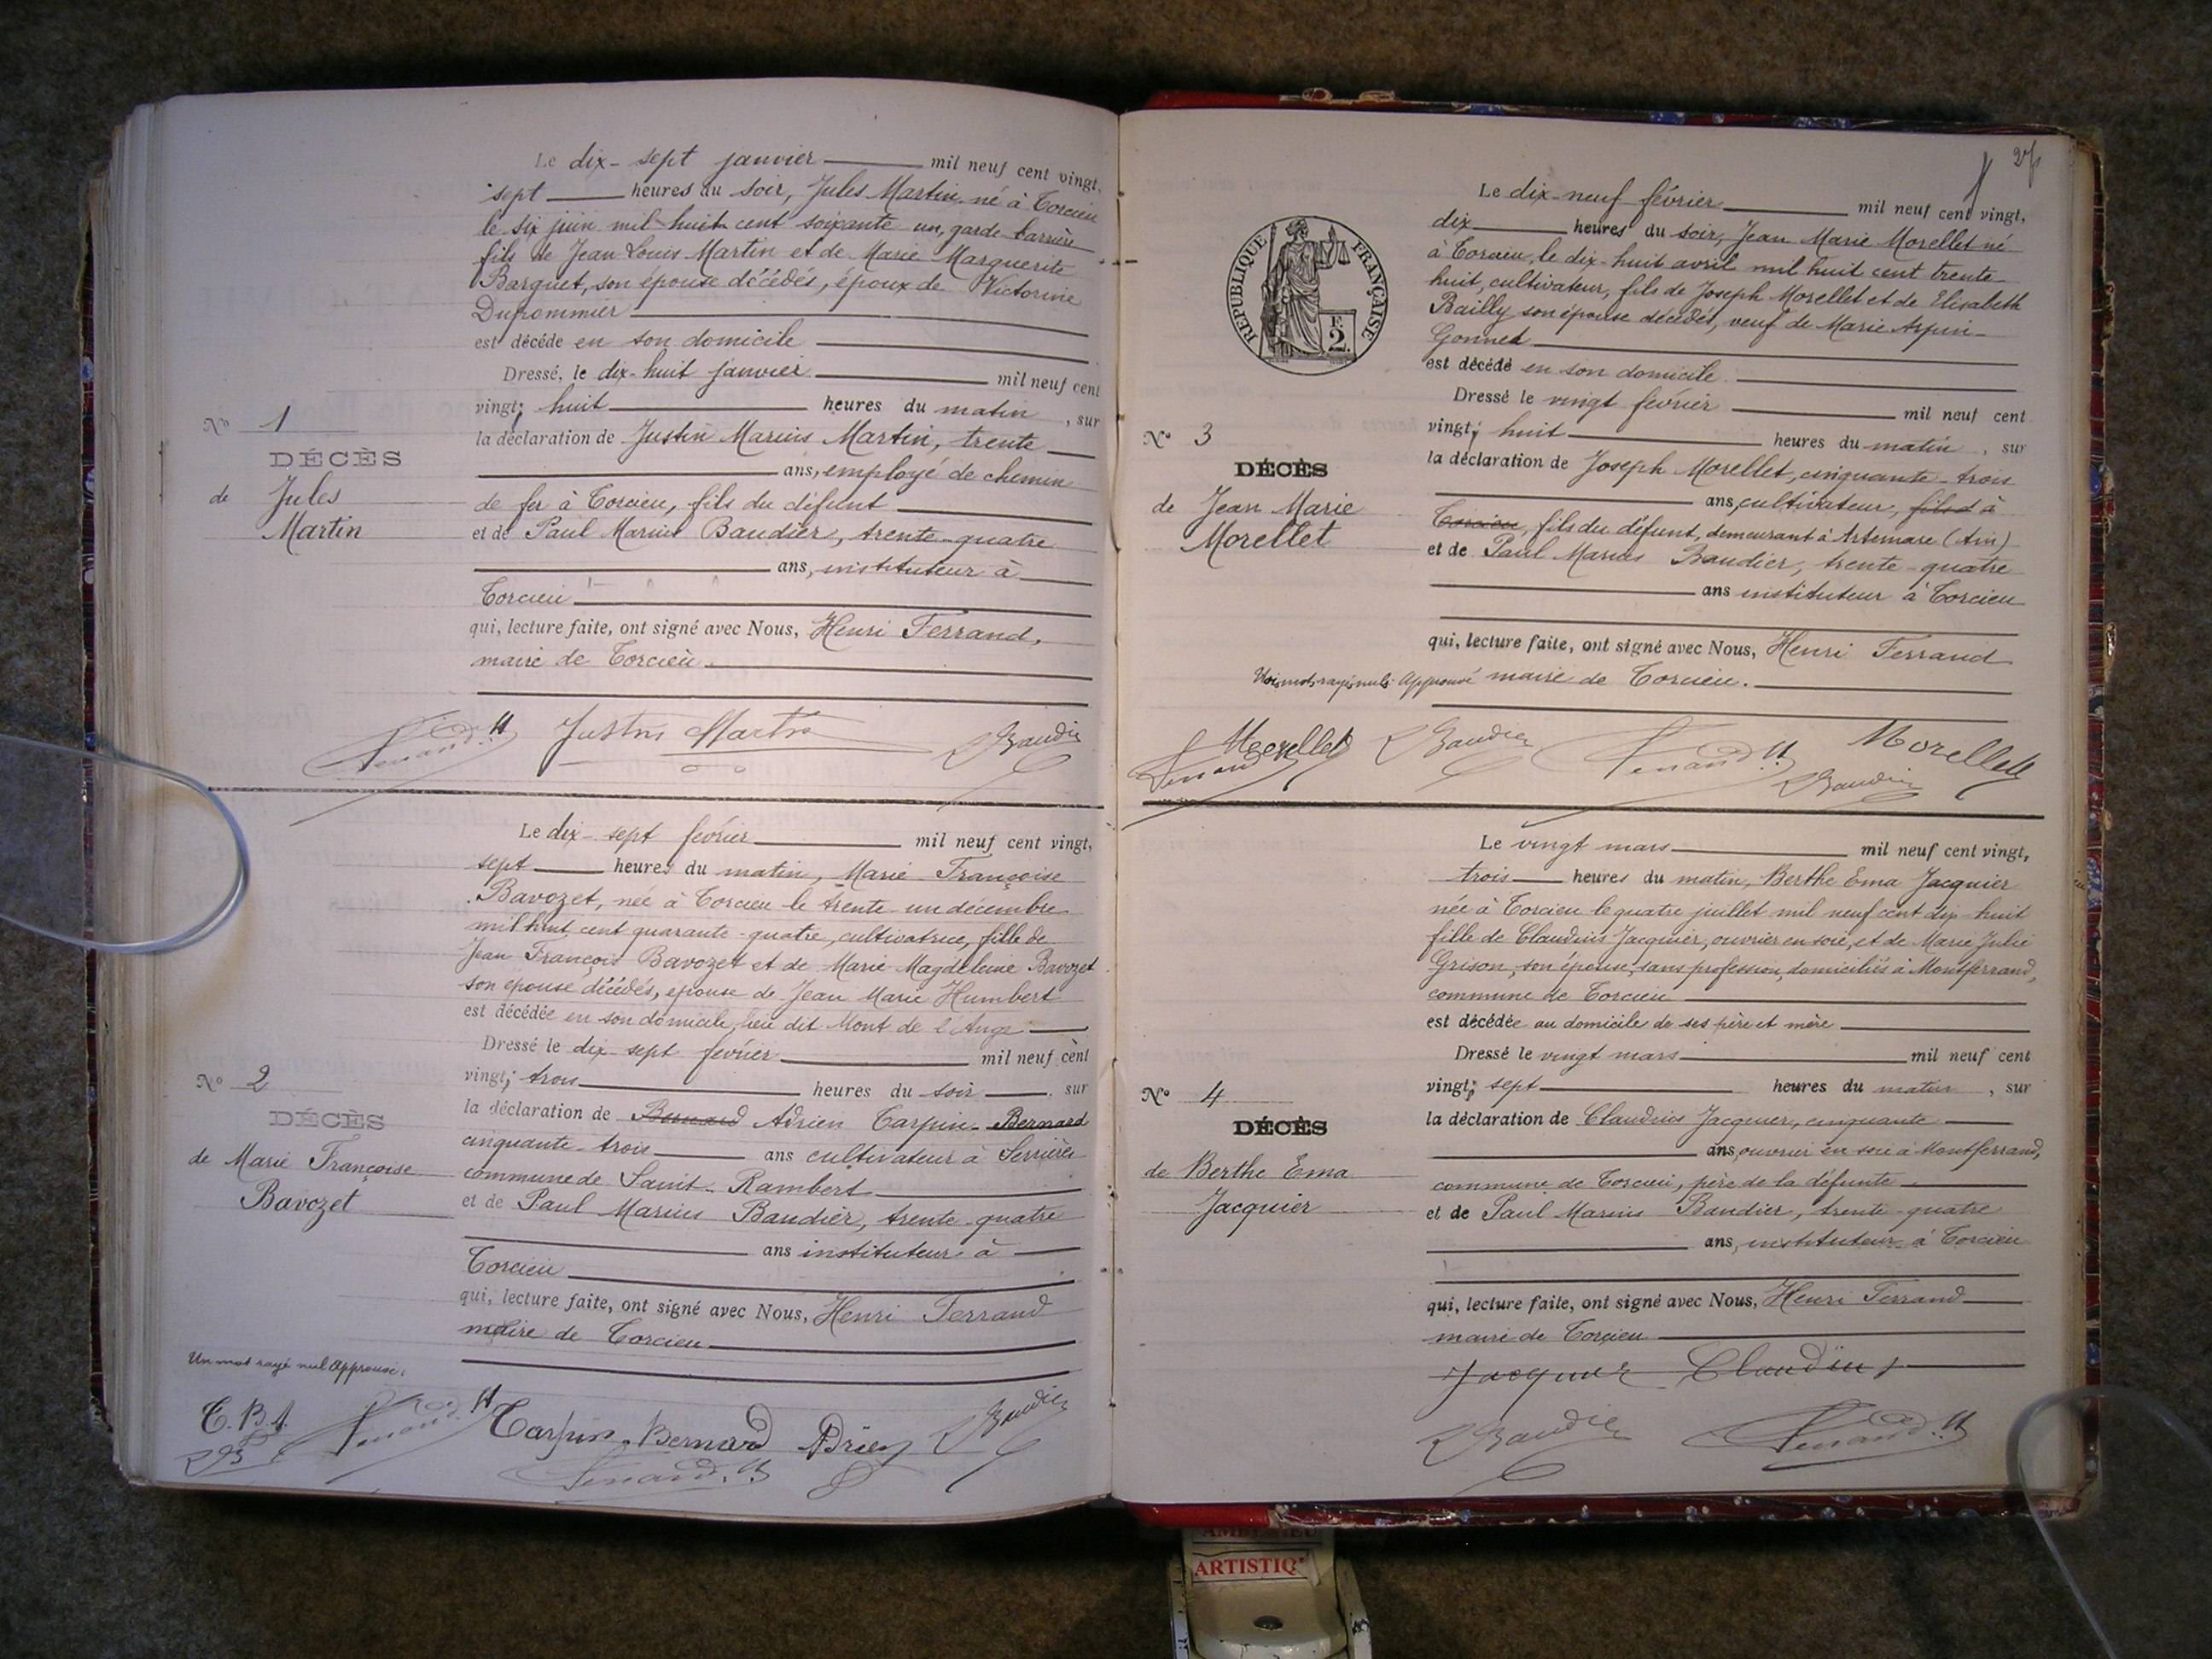 Le dix-sept janvier mil neuf cent vingt,
sept heures du soir, Jules Martin, né à Torcieu
le six juin mil huit cent soixante un, garde barrière
fils de Jean Louis Martin et de Marie Marguerite
Barquet, son épouse décédés, époux de Victorine
Dupommier
est décédé en son domicile
Dressé, le dix-huit janvier mil neuf cent
vingt, huit heures du matin, sur
la déclaration de Justin Marius Martin, trente
ans, employé de chemin
de fer à Torcieu, fils du défunt
et de Paul Marius Baudier, trente-quatre
ans, instituteur à
Torcieu
qui, lecture faite, ont signé avec Nous, Henri Ferrand,
maire de Torcieu.
N° 1
DÉCÈS
de Jules
Martin
Ferrand H Justin Martin Baudier
Le dix-sept février mil neuf cent vingt,
sept heures du matin, Marie Françoise
Bavozet, née à Torcieu le trente-un décembre
mil huit cent quarante-quatre, cultivatrice, fille de
Jean François Bavozet et de Marie Magdeleine Bavozet
son épouse décédés, épouse de Jean Marie Humbert
est décédée en son domicile, lieu dit Mont de l'Ange
Dressé le dix-sept février mil neuf cent
vingt, trois heures du soir, sur
la déclaration de Bernard Adrien Carpin-Bernard
cinquante-trois ans cultivateur à Serrières
commune de Saint-Rambert
et de Paul Marius Baudier, trente-quatre
ans instituteur à
Torcieu
qui, lecture faite, ont signé avec Nous, Henri Ferrand
maire de Torcieu
N° 2
DÉCÈS
de Marie Françoise
Bavozet
Un mot rayé nul Approuvé.
C.B.A. Ferrand H Carpin-Bernard Adrien Baudier
Ferrand H
27
Le dix-neuf février mil neuf cent vingt,
dix heures du soir, Jean Marie Morellet né
à Torcieu, le dix-huit avril mil huit cent trente-
huit, cultivateur, fils de Joseph Morellet et de Elisabeth
Bailly son épouse décédés, veuf de Marie Arpin-
Gonnet
est décédé en son domicile
Dressé le vingt février mil neuf cent
vingt, huit heures du matin, sur
la déclaration de Joseph Morellet, cinquante-trois
ans, cultivateur, fils d à
Torcieu, fils du défunt, demeurant à Artemare (Ain)
et de Paul Marius Baudier, trente-quatre
ans instituteur à Torcieu
qui, lecture faite, ont signé avec Nous, Henri Ferrand
Trois mots rayés nuls. Approuvé maire de Torcieu.
REPUBLIQUE FRANÇAISE
F.
2.
N° 3
DÉCÈS
de Jean Marie
Morellet
Morellet Baudier Ferrand H Morellet
Ferrand Baudier
Le vingt mars mil neuf cent vingt,
trois heures du matin, Berthe Ema Jacquier
née à Torcieu le quatre juillet mil neuf cent dix-huit
fille de Claudius Jacquier, ouvrier en soie, et de Marie Julie
Grison, son épouse, sans profession, domiciliés à Montferrand,
commune de Torcieu
est décédée au domicile de ses père et mère
Dressé le vingt mars mil neuf cent
vingt, sept heures du matin, sur
la déclaration de Claudius Jacquier, cinquante
ans, ouvrier en soie à Montferrand,
commune de Torcieu, père de la défunte
et de Paul Marius Baudier, trente-quatre
ans, instituteur à Torcieu
qui, lecture faite, ont signé avec Nous, Henri Ferrand
maire de Torcieu
N° 4
DÉCÈS
de Berthe Ema
Jacquier
Jacquier Claudius
Baudier Ferrand H
ARTISTIQ'